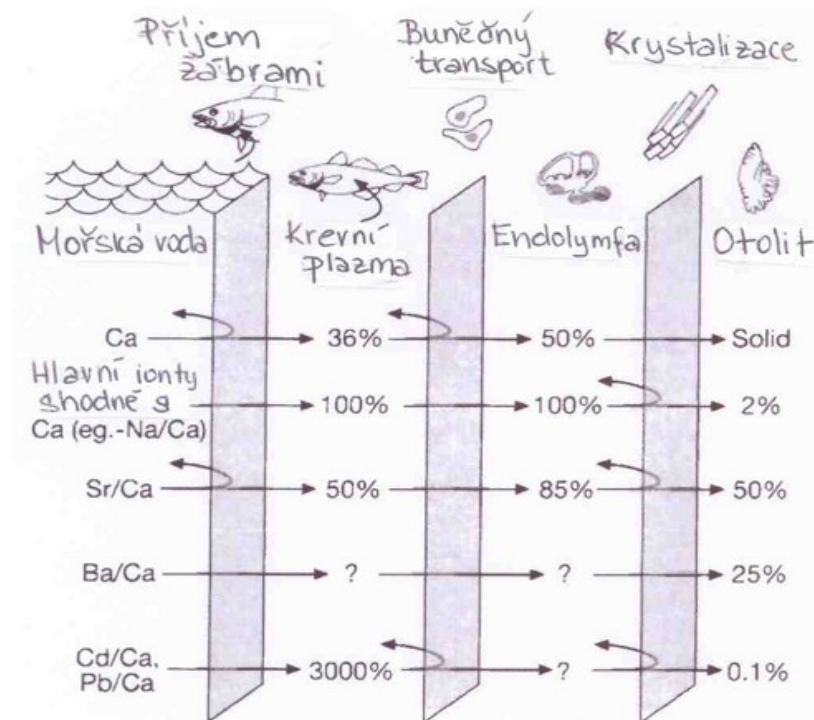 Příjem
žábrami
Buněčný
transport
Krystalizace
Mořská voda
Krevní
plazma
Endolymfa
Otolit
Ca 36% 50% Solid
Hlavní ionty
shodné s
Ca (eg.-Na/Ca) 100% 100% 2%
Sr/Ca 50% 85% 50%
Ba/Ca ? ? 25%
Cd/Ca,
Pb/Ca 3000% ? 0.1%